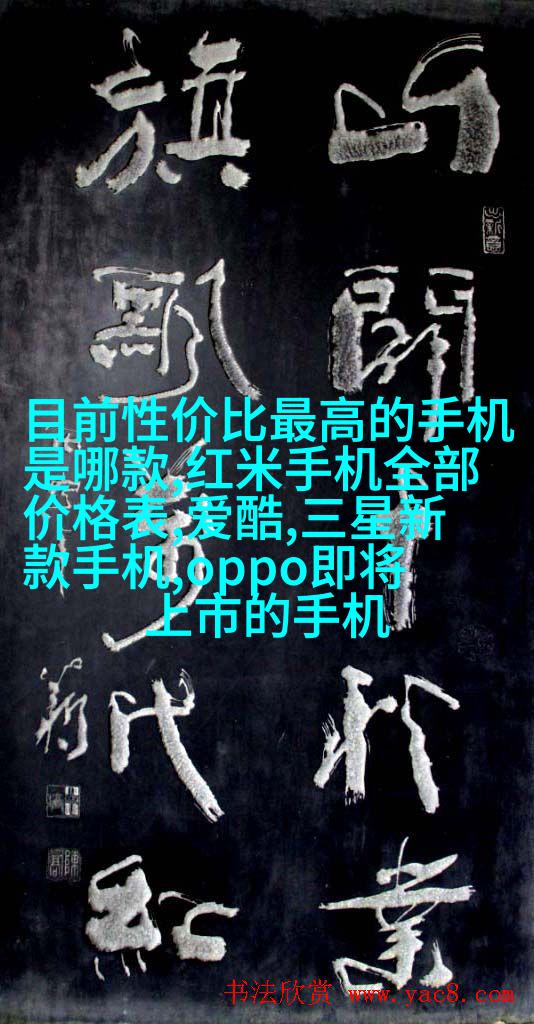 山開千秋業
旗飘萬代紅
目前性价比最高的手机
是哪款,红米手机全部
价格表,爱酷,三星新
款手机,oppo即将
上市的手机
书法欣赏 www.yac8.com